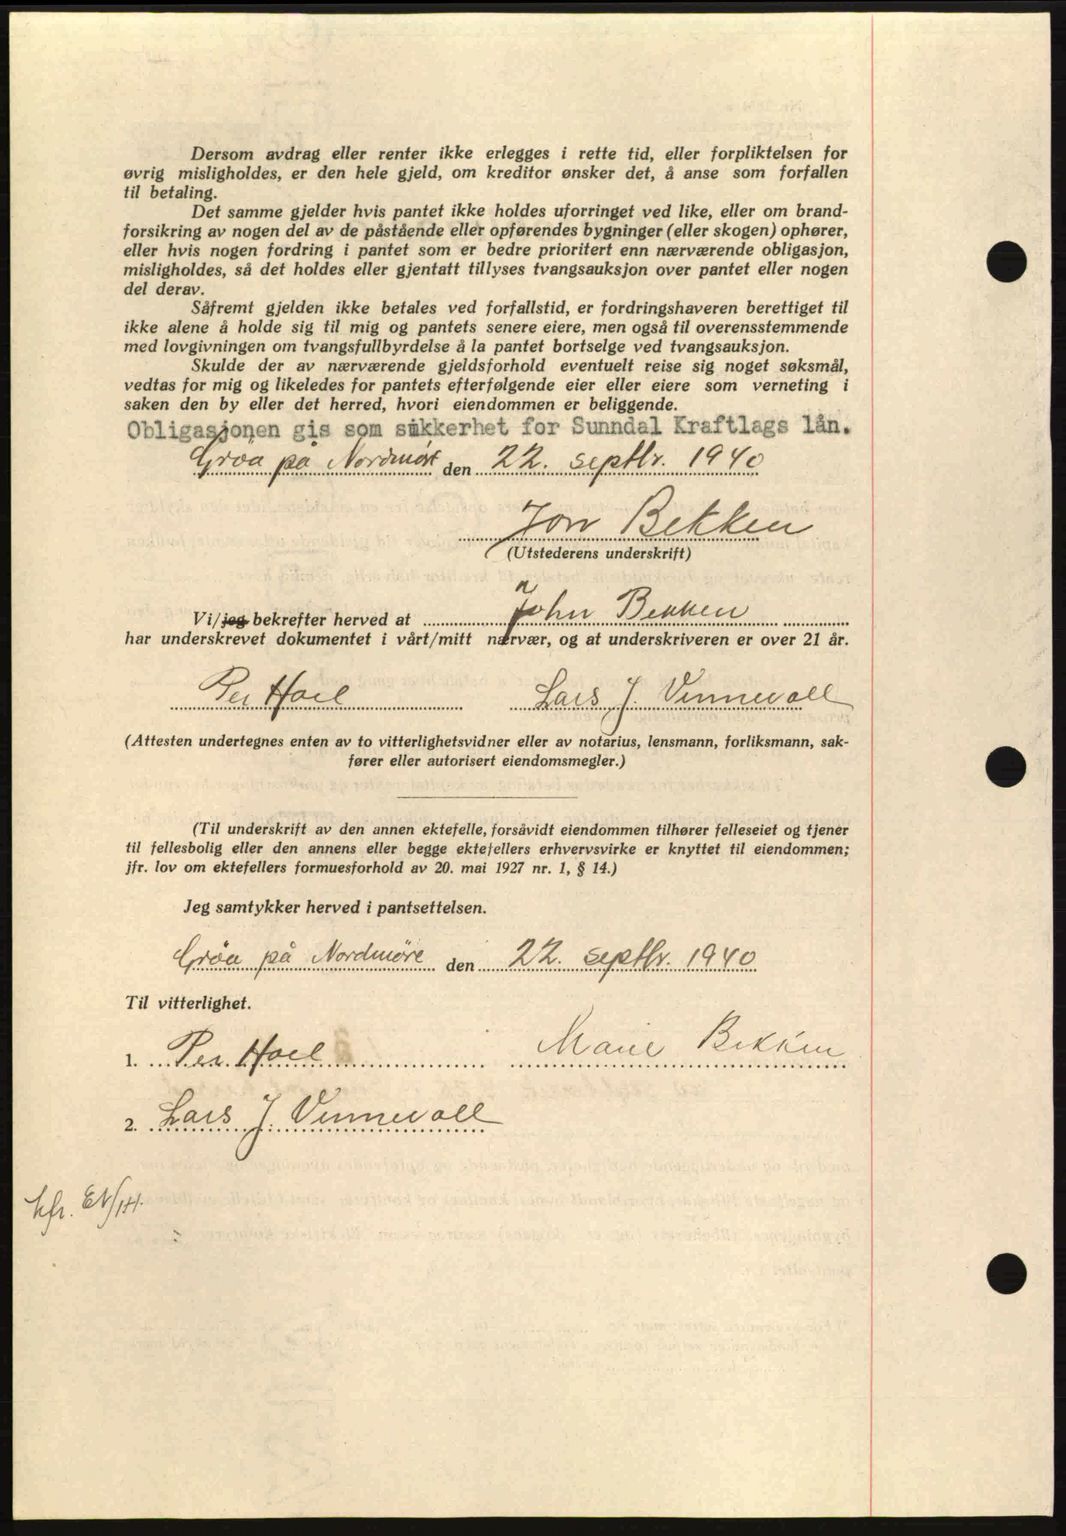 Dersom avdrag eller renter ikke erlegges i rette tid, eller forpliktelsen for
øvrig misligholdes, er den hele gjeld, om kreditor ønsker det, å anse som forfallen
til betaling.
Det samme gjelder hvis pantet ikke holdes uforringet ved like, eller om brand-
forsikring av nogen del av de påstående eller opførendes bygninger (eller skogen) ophører,
eller hvis nogen fordring i pantet som er bedre prioritert enn nærværende obligasjon,
misligholdes, så det holdes eller gjentatt tillyses tvangsauksjon over pantet eller nogen
del derav.
Såfremt gjelden ikke betales ved forfallstid, er fordringshaveren berettiget til
ikke alene å holde sig til mig og pantets senere eiere, men også til overensstemmende
med lovgivningen om tvangsfullbyrdelse å la pantet bortselge ved tvangsauksjon.
Skulde der av nærværende gjeldsforhold eventuelt reise sig noget søksmål,
vedtas for mig og likeledes for pantets efterfølgende eier eller eiere som verneting i
saken den by eller det herred, hvori eiendommen er beliggende.
Obligasjonen gis som sikkerhet for Sunndal Kraftlags lån.
Grøa på Nordmøre den 22. septbr. 1940
Jon Bekken
(Utstederens underskrift)
Vi/jeg bekrefter herved at John Bekken
har underskrevet dokumentet i vårt/mitt nærvær, og at underskriveren er over 21 år.
Per Hoel Lars J. Vinnevoll
(Attesten undertegnes enten av to vitterlighetsvidner eller av notarius, lensmann, forliksmann, sak-
fører eller autorisert eiendomsmegler.)
(Til underskrift av den annen ektefelle, forsåvidt eiendommen tilhører felleseiet og tjener
til fellesbolig eller den annens eller begge ektefellers erhvervsvirke er knyttet til eiendommen;
jfr. lov om ektefellers formuesforhold av 20. mai 1927 nr. 1, § 14.)
Jeg samtykker herved i pantsettelsen.
Grøa på Nordmøre den 22. septbr. 1940
Til vitterlighet.
1. Per Hoel Marie Bekken
2. Lars J. Vinnevoll